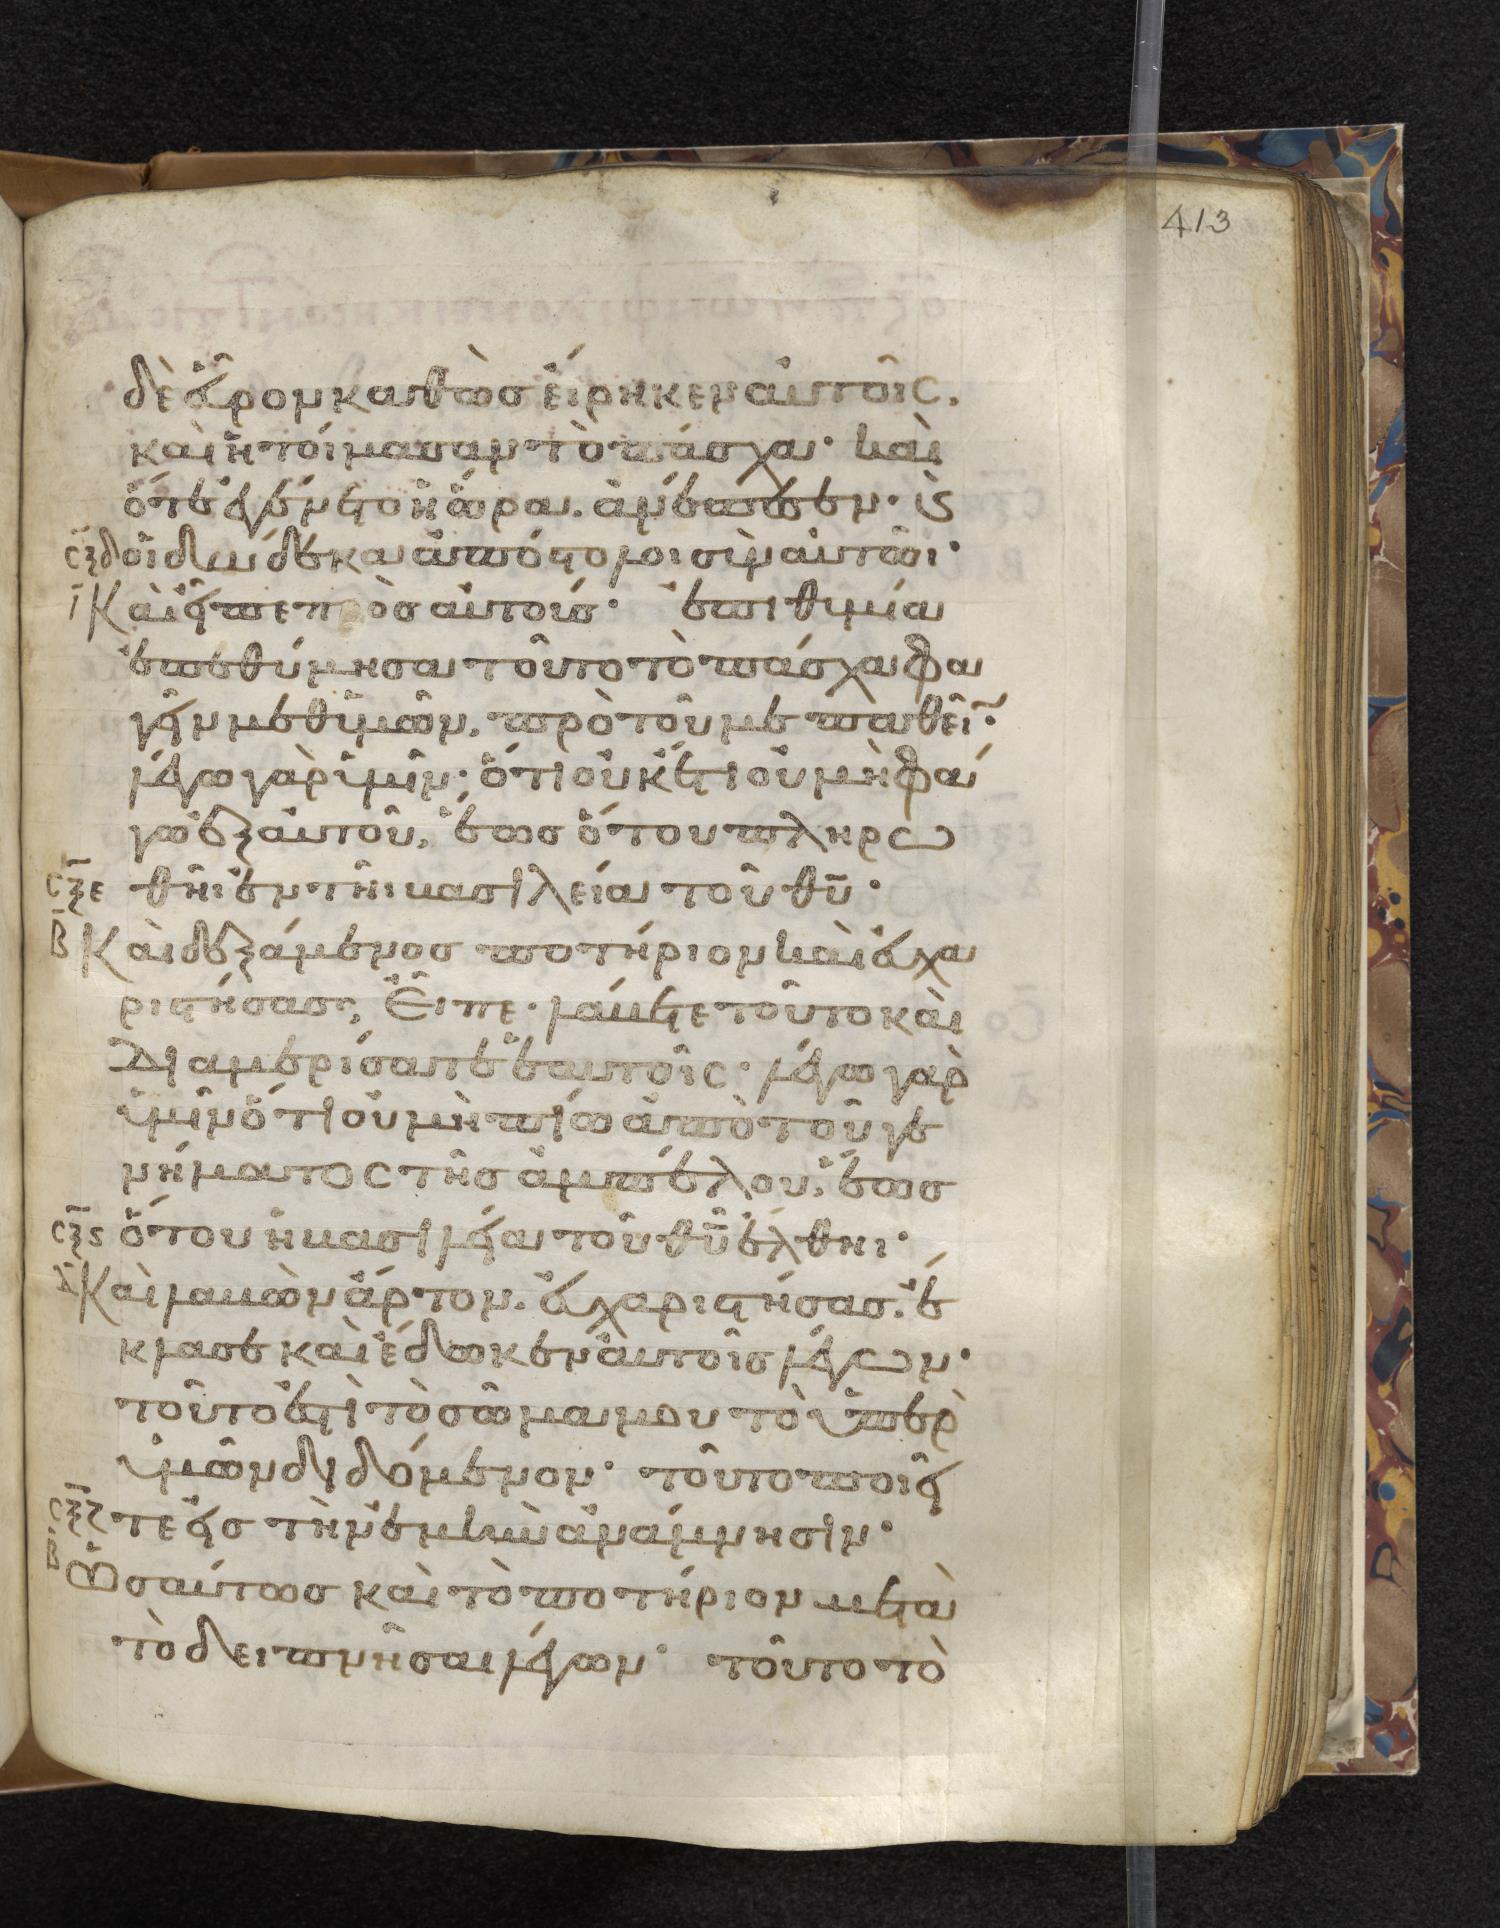 413
δὲ εὗρον καθὼσ εἴρηκεν αὐτοῖς.
καὶ ἡτοίμασαν τὸ πάσχα· καὶ
ὅτε ἐγένετο ἡ ὥρα. ἀνέπεσεν· ϗ
σξδ οἱ δώδεκα ἀπόστολοι σὺν αὐτῶι·
ι Καὶ εἶπε πρὸσ αὐτούσ· ἐπιθυμία
ἐπεθύμησα τοῦτο τὸ πάσχα φα
γεῖν μεθ ὑμῶν, πρὸ τοῦ με παθεῖ̄·
λέγω γὰρ ὑμῖν· ὅτι οὐκέτι οὐ μὴ φά
γω ἐξ αὐτοῦ, ἕωσ ὅτου πληρω
σξε θῆι ἐν τῆι βασιλεία τοῦ θῡ·
β Καὶ δεξάμενοσ ποτήριον καὶ εὐχα
ριστήσασ, εἶπε· λάβετε τοῦτο καὶ
διαμερίσατε ἑαυτοῖς· λέγω γὰρ
ὑμῖν ὅτι οὐ μὴ πίω ἀπὸ τοῦ γε
νήματος τῆσ ἀμπέλου, ἕωσ
σξς ὅτου ἡ βασιλεία τοῦ θῡ ἔλθηι·
α Καὶ λαβὼν ἄρτον. εὐχαριστήσασ. ἔ
κλασε καὶ ἔδωκεν αὐτοῖσ λέγων·
τοῦτο ἐστὶ τὸ σῶμα μου τὸ ὑπὲρ
ὑμῶν διδόμενον· τοῦτο ποιεῖ
σξζ τε εἰσ τὴν ἐμὴν ἀνάμνησιν·
β Ὡσαύτωσ καὶ τὸ ποτήριον μετὰ
τὸ δειπνῆσαι λέγων· τοῦτο τὸ